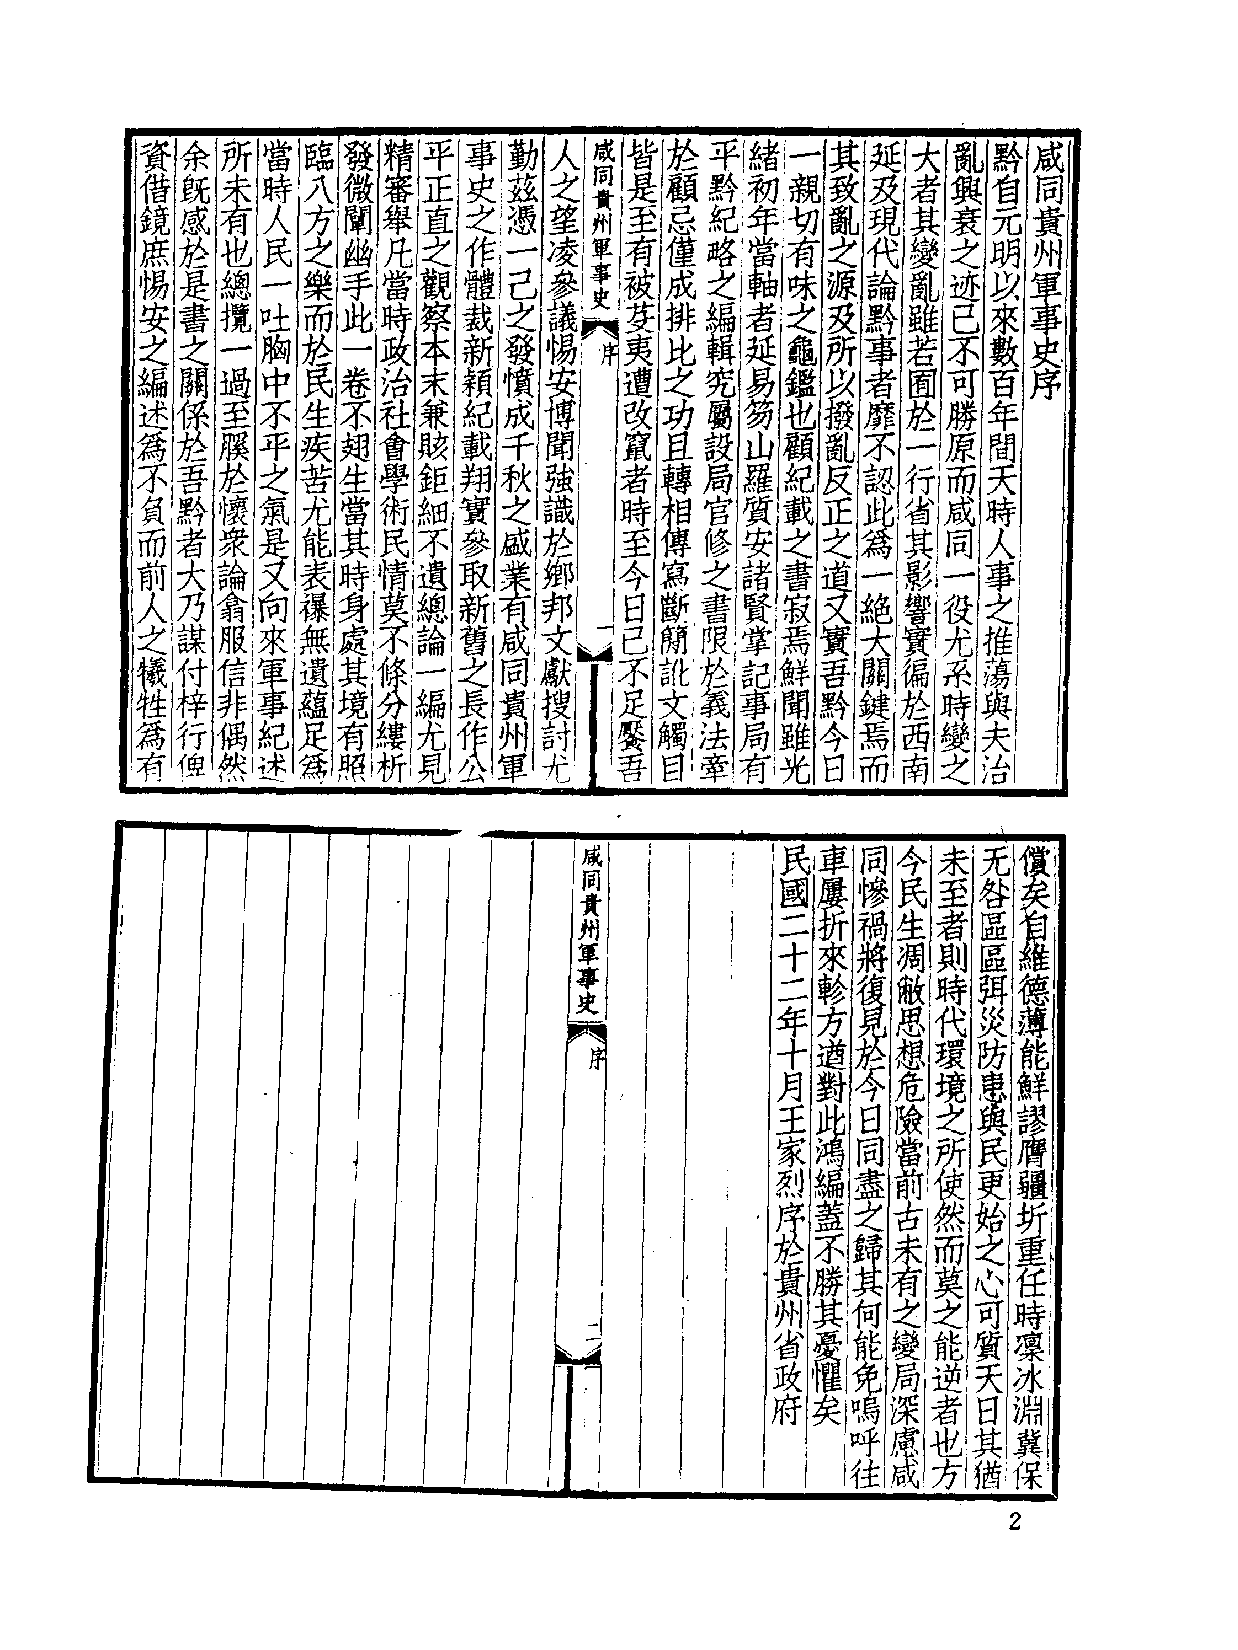 咸同貴州軍事史序
黔自元明以來數百年間天時人事之推蕩與夫治
亂興衰之迹已不可勝原而咸同一役尤系時變之
大者其變亂雖若囿於一行省其影響實徧於西南
延及現代論黔事者靡不認此為一絕大關鍵焉而
其致亂之源及所以撥亂反正之道又實吾黔今日
一親切有味之龜鑑也顧紀載之書寂焉鮮聞雖光
緒初年當軸者延易笏山羅質安諸賢掌記事局有
平黔紀略之編輯究屬設局官修之書限於義法牽
於顧忌僅成排比之功且轉相傳寫斷簡訛文觸目
皆是至有被芟夷遭改竄者時至今日已不足饜吾
咸同貴州軍事史 序 一
人之望凌參議惕安博聞強識於鄉邦文獻搜討尤
勤茲憑一己之發憤成千秋之盛業有咸同貴州軍
事史之作體裁新穎紀載翔實參取新舊之長作公
平正直之觀察本末兼賅鉅細不遺總論一編尤見
精審舉凡當時政治社會學術民情莫不條分縷析
發微闡幽手此一卷不翅生當其時身處其境有照
臨八方之樂而於民生疾苦尤能表襮無遺蘊足為
當時人民一吐胸中不平之氣是又向來軍事紀述
所未有也總攬一過至膎於懷衆論翕服信非偶然
余既感於是書之關係於吾黔者大乃謀付梓行俾
資借鏡庶惕安之編述為不負而前人之犧牲為有
償矣自維德薄能鮮謬膺疆圻重任時凜冰淵冀保
无咎區區弭災防患與民更始之心可質天日其猶
未至者則時代環境之所使然而莫之能逆者也方
今民生凋敝思想危險當前古未有之變局深慮咸
同慘禍將復見於今日同盡之歸其何能免嗚呼往
車屢折來軫方遒對此鴻編蓋不勝其憂懼矣
民國二十二年十月王家烈序於貴州省政府
咸同貴州軍事史 序 二
2